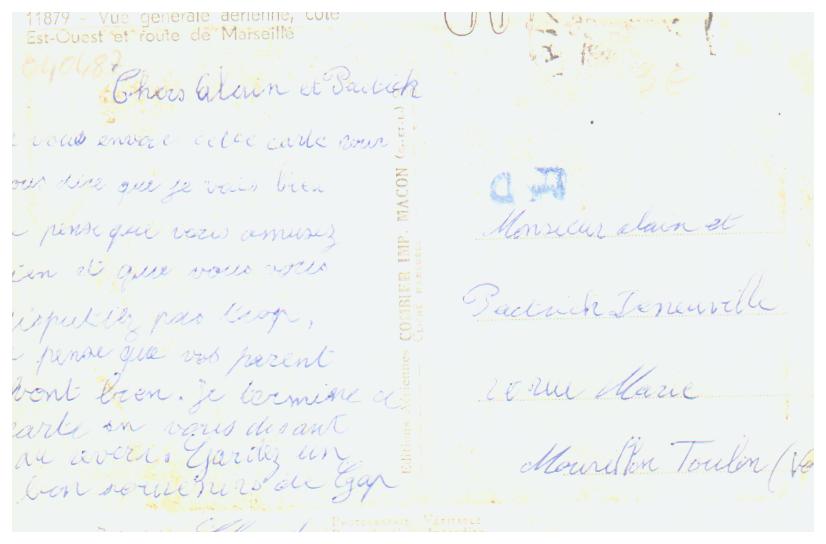 11879 - Vue générale aérienne, côté
Est-Ouest et route de Marseille
040487
Chers Alain et Patrick
vous envoie cette carte pour
ous dire que je vais bien
pense que vous amusez
ien et que vous vous
isputiez pas trop,
pense que vos parent
vont bien. Je termine
carte en vous disant
au avoir. Gardez un
bon souvenirs de Gap
Editions Aériennes COMBIER IMP. MACON
Monsieur alain et
Patrick
rue Marie
Mourillon Toulon (Va
PHOTOGRAPHIE VÉRITABLE